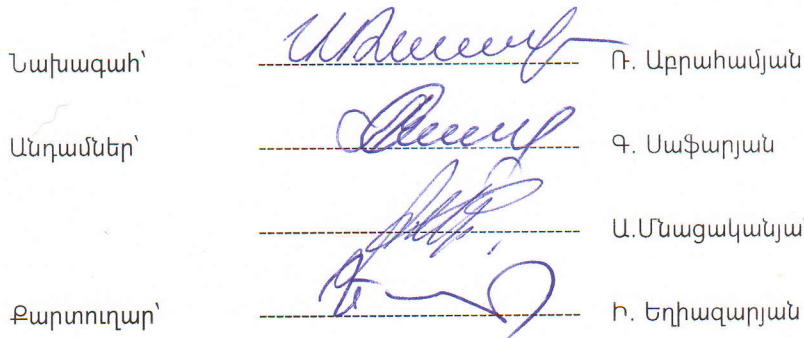 Նախագահ՝ Ռ. Աբրահամյան
Անդամներ՝ Գ. Սաֆարյան
Ա.Մնացականյա
Քարտուղար՝ Ի. Եղիազարյան